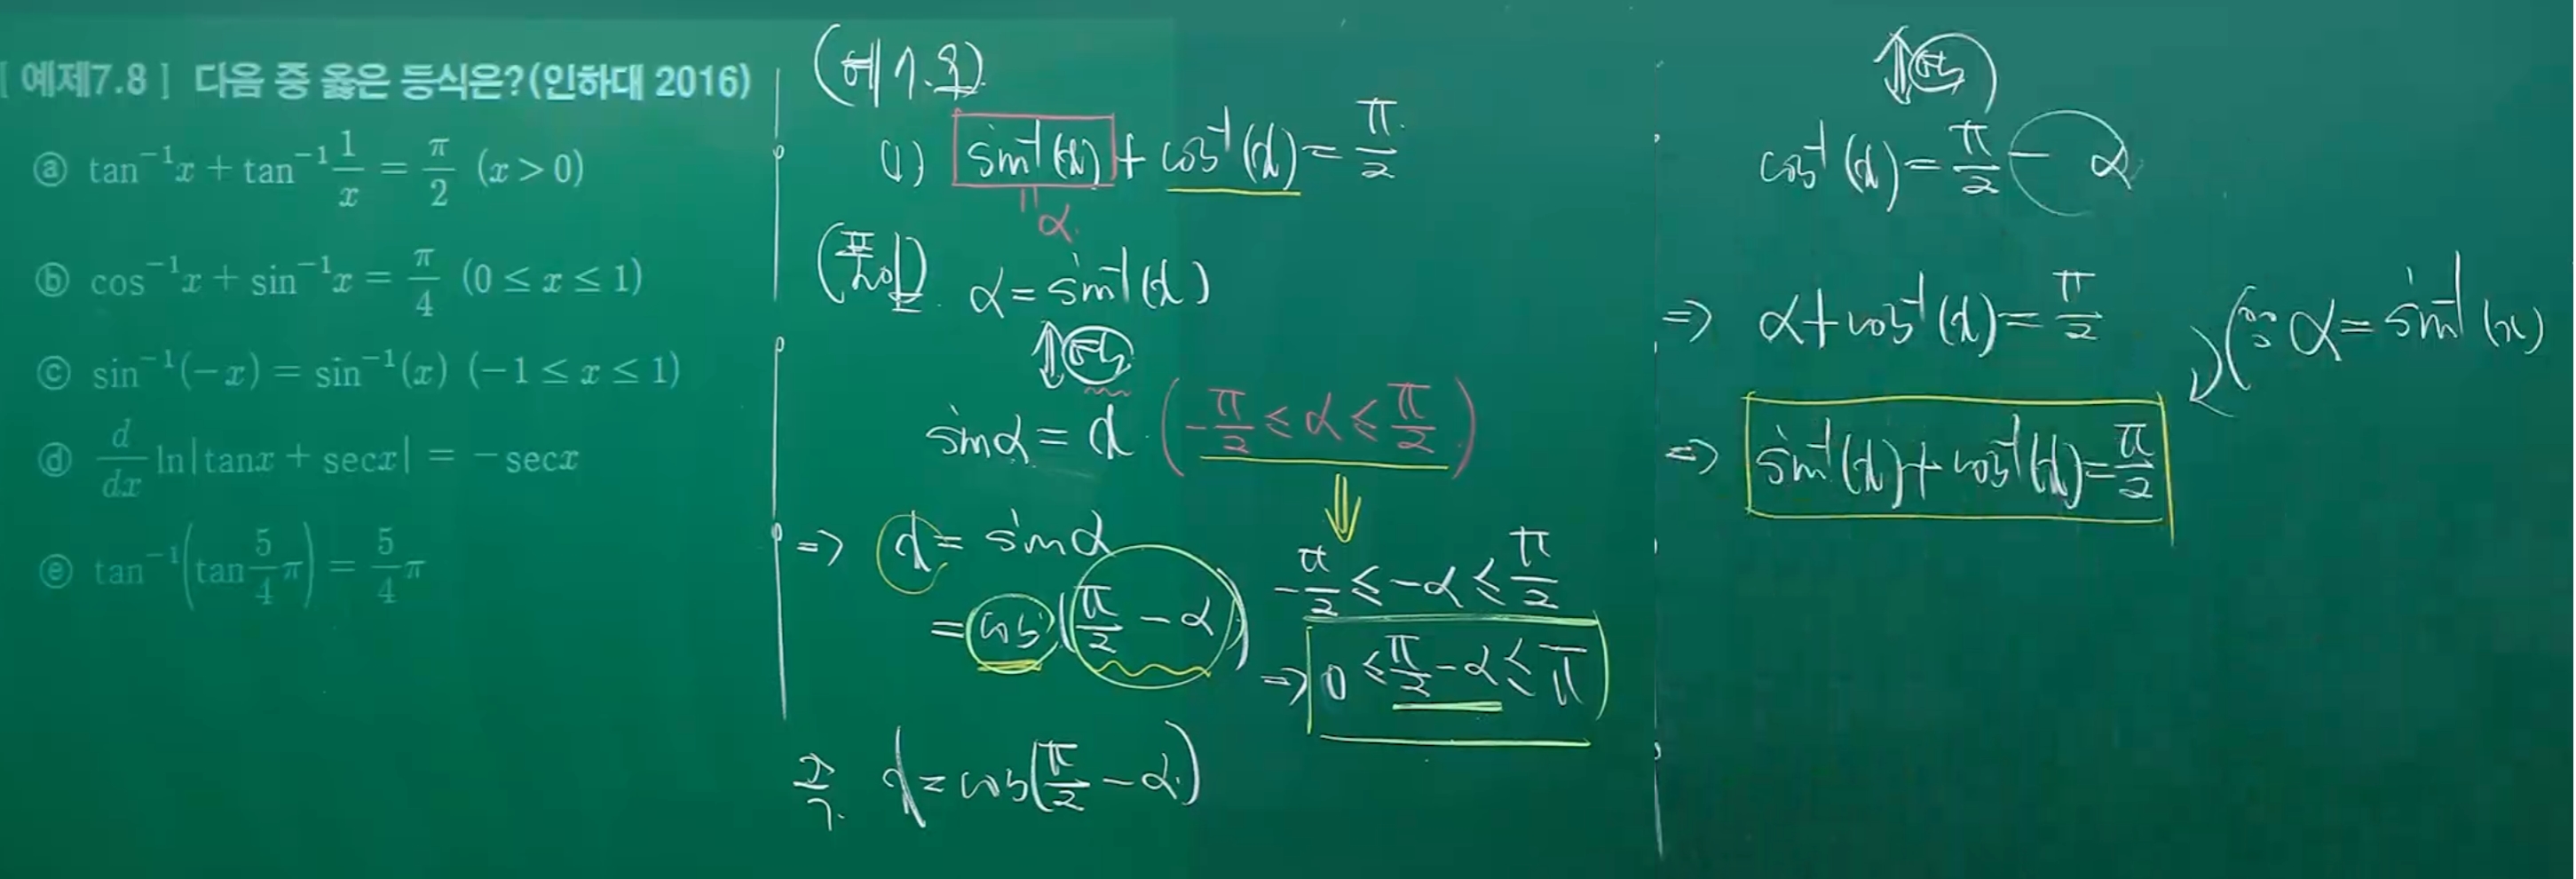 [ 예제7.8 ] 다음 중 옳은 등식은?(인하대 2016)
ⓐ tan⁻¹x + tan⁻¹ 1/x = π/2 (x > 0)
ⓑ cos⁻¹x + sin⁻¹x = π/4 (0 ≤ x ≤ 1)
ⓒ sin⁻¹(−x) = sin⁻¹(x) (−1 ≤ x ≤ 1)
ⓓ d/dx ln|tanx + secx| = −secx
ⓔ tan⁻¹(tan 5/4 π) = 5/4 π
(예 7.8)
(1) sin⁻¹(x) + cos⁻¹(x) = π/2
α
(풀이) α = sin⁻¹(x)
⇕
sinα = x (−π/2 ≤ α ≤ π/2)
⇓
⇒ x = sinα
= cos(π/2 − α)
−π/2 ≤ −α ≤ π/2
⇒ 0 ≤ π/2 − α ≤ π
즉 x = cos(π/2 − α)
⇕
cos⁻¹(x) = π/2 − α
⇒ α + cos⁻¹(x) = π/2
(∵ α = sin⁻¹(x)
⇒ sin⁻¹(x) + cos⁻¹(x) = π/2